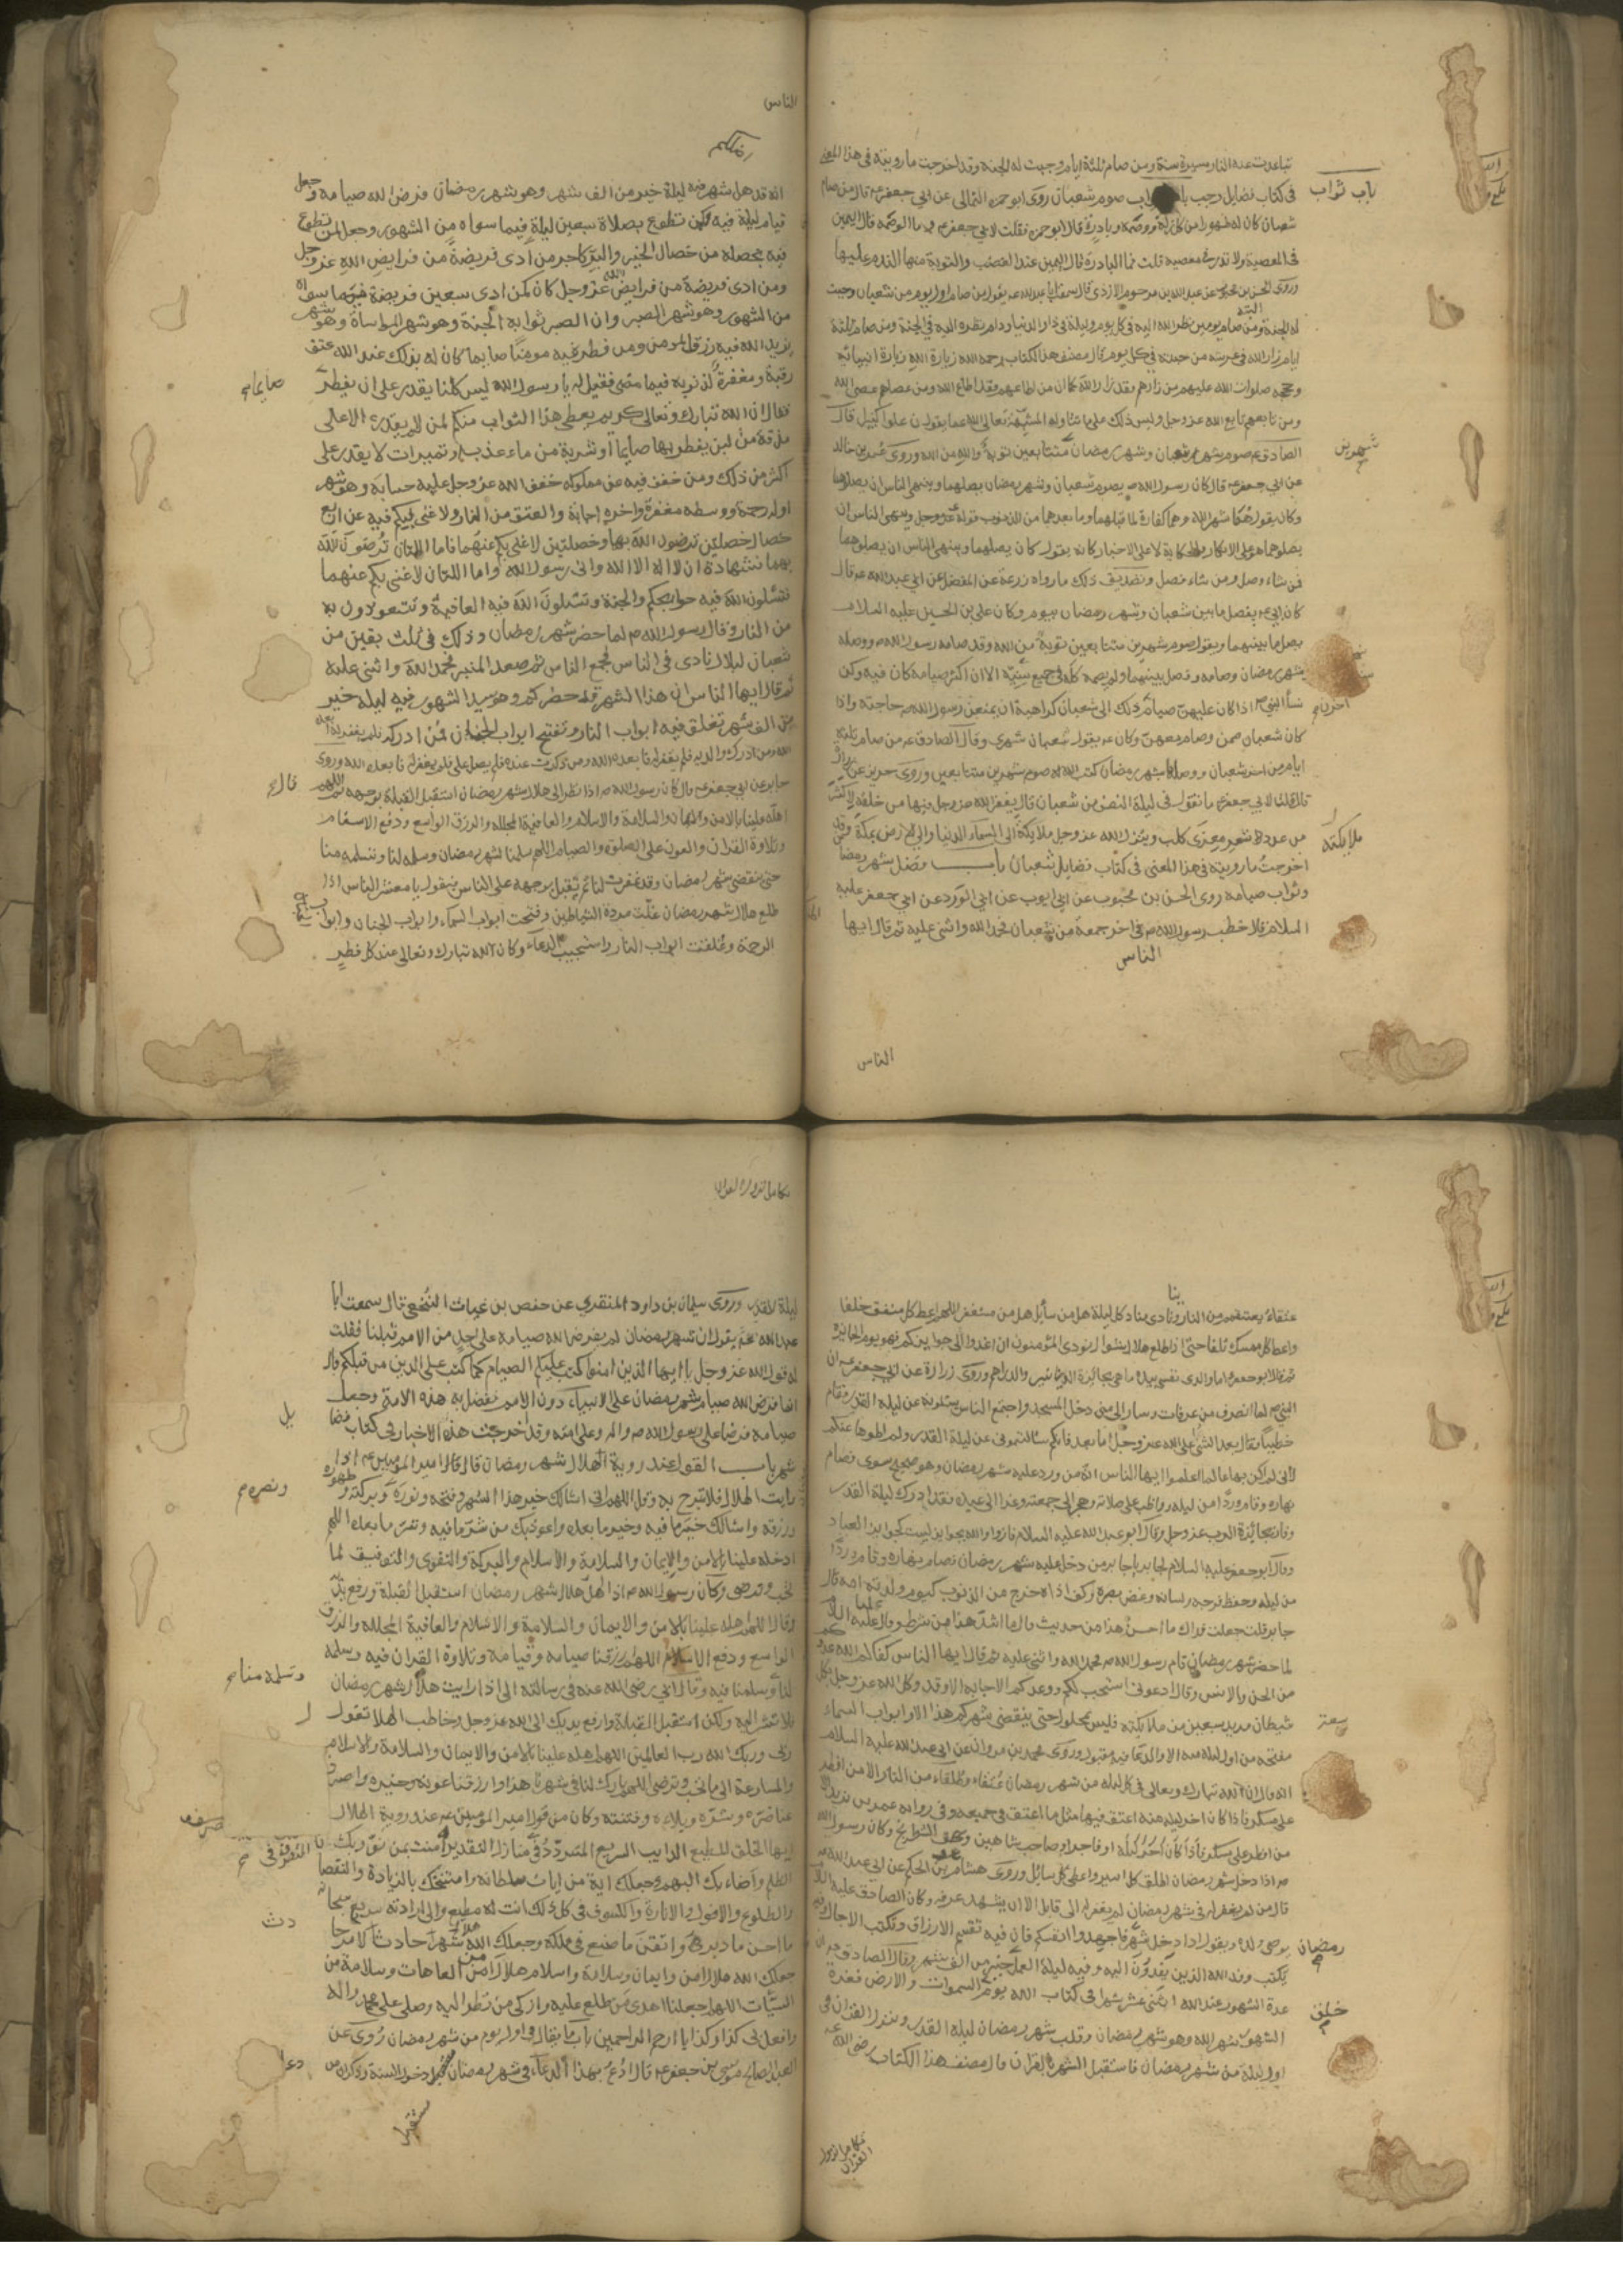 تباعدت عنه النار مسيرة سنة ومن صام ثلثة ايام وجبت له الجنة وقد اخرجت ما رويته في هذا المعنى
باب ثواب
في كتاب فضايل رجب صوم شعبان روى ابو حمزة الثمالي عن ابي جعفر ع قال من صام
شعبان كان له طهورا من كل زلة ووصمة وبادرة قال ابو حمزة فقلت لابي جعفر ع ما الوصمة قال اليمين
في المعصية ولا نذر في معصية قلت فما البادرة قال اليمين عند الغضب والتوبة منها الندم عليها
وروى الحسن بن محبوب عن عبد الله بن مرحوم الازدي قال سمعت ابا عبد الله ع يقول من صام اول يوم من شعبان وجبت
له الجنة البتة ومن صام يومين نظر الله اليه في كل يوم وليلة في دار الدنيا ودام نظره اليه في الجنة ومن صام ثلثة
ايام زار الله في عرشه من جنته في كل يوم قال مصنف هذا الكتاب رحمه الله زيارة الله زيارة انبيائه
وحججه صلوات الله عليهم من زارهم فقد زار الله كما ان من اطاعهم فقد اطاع الله ومن عصاهم عصى الله
ومن تابعهم تابع الله عز وجل وليس ذلك على ما تتاوله المشبهة تعالى الله عما يقولون علوا كبيرا قال
الصادق ع صوم شهر شعبان وشهر رمضان متتابعين توبة والله من الله وروى عمرو بن خالد
شهرين
عن ابي جعفر ع قال كان رسول الله ص يصوم شعبان وشهر رمضان يصلهما وينهى الناس ان يصلوهما
وكان يقول هما شهرا الله وهما كفارة لما قبلهما وما بعدهما من الذنوب قوله ع وينهى الناس ان
يصلوهما هو على الانكار والحكاية لا على الاخبار كانه يقول كان يصلهما وينهى الناس ان يصلوهما
فمن شاء وصل ومن شاء فصل وتصديق ذلك ما رواه زرعة عن المفضل عن ابي عبد الله ع قال
كان ابي ع يفصل ما بين شعبان وشهر رمضان بيوم وكان علي بن الحسين عليه السلام
يصل ما بينهما ويقول صوم شهرين متتابعين توبة من الله وقد صامه رسول الله ص ووصله
بشهر رمضان وصامه وفصل بينهما ولم يصمه كله في جميع سنيه الا ان اكثر صيامه كان فيه وكن
نساء النبي ص اذا كان عليهن صيام اخرن ذلك الى شعبان كراهية ان يمنعن رسول الله ص حاجته واذا
كان شعبان صمن وصام معهن وكان ع يقول شعبان شهري وقال الصادق ع من صام ثلثة
ايام من اخر شعبان ووصلها بشهر رمضان كتب الله له صوم شهرين متتابعين وروى حريز عن زرارة
قال قلت لابي جعفر ع ما تقول في ليلة النصف من شعبان قال يغفر الله عز وجل فيها من خلقه لاكثر
من عدد شعر معزى كلب وينزل الله عز وجل ملائكته الى السماء الدنيا والى الارض بمكة وقد
ملائكته
اخرجت ما رويته في هذا المعنى في كتاب فضايل شعبان باب فضل شهر رمضان
وثواب صيامه روى الحسن بن محبوب عن ابي ايوب عن ابي الورد عن ابي جعفر عليه
السلام قال خطب رسول الله ص في اخر جمعة من شعبان فحمد الله واثنى عليه ثم قال ايها
الناس
الناس
الناس
انه قد اظلكم شهر فيه ليلة خير من الف شهر وهو شهر رمضان فرض الله صيامه وجعل
قيام ليلة فيه كمن تطوع بصلاة سبعين ليلة فيما سواه من الشهور وجعل لمن تطوع
فيه بخصلة من خصال الخير والبر كاجر من ادى فريضة من فرايض الله عز وجل
ومن ادى فريضة من فرايض الله عز وجل كان كمن ادى سبعين فريضة فيما سواه
من الشهور وهو شهر الصبر وان الصبر ثوابه الجنة وهو شهر المواساة وهو شهر
يزيد الله فيه رزق المومن ومن فطر فيه مومنا صايما كان له بذلك عند الله عتق
رقبة ومغفرة لذنوبه فيما مضى فقيل له يا رسول الله ليس كلنا يقدر على ان يفطر
صايما
فقال ان الله تبارك وتعالى كريم يعطي هذا الثواب منكم لمن لم يقدر الا على
مذقة من لبن يفطر بها صايما او شربة من ماء عذب او تميرات لا يقدر على
اكثر من ذلك ومن خفف فيه عن مملوكه خفف الله عز وجل عليه حسابه وهو شهر
اوله رحمة ووسطه مغفرة واخره اجابة والعتق من النار ولا غنى بكم فيه عن اربع
خصال خصلتين ترضون الله بهما وخصلتين لا غنى بكم عنهما فاما اللتان ترضون الله
بهما فشهادة ان لا اله الا الله واني رسول الله واما اللتان لا غنى بكم عنهما
فتسئلون الله فيه حوايجكم والجنة وتسئلون الله فيه العافية وتتعوذون به
من النار وقال رسول الله ص لما حضر شهر رمضان وذلك في ثلث بقين من
شعبان لبلال نادى في الناس فجمع الناس ثم صعد المنبر فحمد الله واثنى عليه
ثم قال ايها الناس ان هذا الشهر قد حضركم وهو سيد الشهور فيه ليلة خير
من الف شهر تغلق فيه ابواب النار وتفتح ابواب الجنان فمن ادركه فلم يغفر له فابعده
الله ومن ادرك والديه فلم يغفر له فابعده الله ومن ذكرت عنده فلم يصل علي فلم يغفر له فابعده الله وروى
جابر عن ابي جعفر ع قال كان رسول الله ص اذا نظر الى هلال شهر رمضان استقبل القبلة بوجهه ثم قال اللهم
اهله علينا بالامن والايمان والسلامة والاسلام والعافية المجللة والرزق الواسع ودفع الاسقام
وتلاوة القران والعون على الصلوة والصيام اللهم سلمنا لشهر رمضان وسلمه لنا وتسلمه منا
حتى ينقضي شهر رمضان وقد غفرت لنا ثم يقبل بوجهه على الناس فيقول يا معشر الناس اذا
طلع هلال شهر رمضان غلت مردة الشياطين وفتحت ابواب السماء وابواب الجنان وابواب
الرحمة وغلقت ابواب النار واستجيب الدعاء وكان الله تبارك وتعالى عند كل فطر
عتقاء يعتقهم من النار ونادى مناد كل ليلة هل من سائل هل من مستغفر اللهم اعط كل منفق خلفا
واعط كل ممسك تلفا حتى اذا طلع هلال شوال نودي المؤمنون ان اغدوا الى جوايزكم فهو يوم الجايزة
ثم قال ابو جعفر ع اما والذي نفسي بيده ما هي بجائزة الدنانير والدراهم وروى زرارة عن ابي جعفر ع ان
النبي ص لما انصرف من عرفات وسار الى منى دخل المسجد واجتمع الناس يسئلونه عن ليلة القدر فقام
خطيبا فقال بعد الثنى على الله عز وجل اما بعد فانكم سالتموني عن ليلة القدر ولم اطوها عنكم
لاني لم اكن بها عالما اعلموا ايها الناس انه من ورد عليه شهر رمضان وهو صحيح سوى فصام
نهاره وقام وردا من ليله وواظب على صلاته وهجر الى جمعته وغدا الى عيده فقد ادرك ليلة القدر
وفاز بجائزة الرب عز وجل وقال ابو عبد الله عليه السلام فازوا والله بجوايز ليست كجوايز العباد
وقال ابو جعفر عليه السلام لجابر يا جابر من دخل عليه شهر رمضان فصام نهاره وقام وردا
من ليله وحفظ فرجه ولسانه وغض بصره وكف اذاه خرج من الذنوب كيوم ولدته امه قال
جابر قلت جعلت فداك ما احسن هذا من حديث قال ما اشد هذا من شرط وقال علي عليه السلام
لما حضر شهر رمضان قام رسول الله ص فحمد الله واثنى عليه ثم قال ايها الناس كفاكم الله عدوكم
من الجن والانس وقال ادعوني استجب لكم ووعدكم الاجابة الا وقد وكل الله عز وجل بكل
شيطان مريد سبعين من ملائكته فليس بمحلول حتى ينقضي شهركم هذا الا وابواب السماء
سبعة
مفتحة من اول ليلة منه الا والدعاء فيه مقبول وروى محمد بن مروان عن ابي عبد الله عليه السلام
انه قال ان لله تبارك وتعالى في كل ليلة من شهر رمضان عتقاء وطلقاء من النار الا من افطر
على مسكر فاذا كان اخر ليلة منه اعتق فيها مثل ما اعتق في جميعه وفي رواية عمر بن يزيد الا
من افطر على مسكر او مشاحن او صاحب شاهين وهو الشطرنج وكان رسول الله
ص اذا دخل شهر رمضان اطلق كل اسير واعطى كل سائل وروى هشام بن الحكم عن ابي عبد الله ع
قال من لم يغفر له في شهر رمضان لم يغفر له الى قابل الا ان يشهد عرفة وكان الصادق عليه السلام
يوصي ولده ويقول اذا دخل شهر رمضان فاجهدوا انفسكم فان فيه تقسم الارزاق وتكتب الاجال وفيه
يكتب وفد الله الذين يفدون اليه وفيه ليلة العمل فيها خير من الف شهر وقال الصادق ع ان
عدة الشهور عند الله اثنى عشر شهرا في كتاب الله يوم خلق السموات والارض فغرة
الشهور شهر الله وهو شهر رمضان وقلب شهر رمضان ليلة القدر ونزل القران في
اول ليلة من شهر رمضان فاستقبل الشهر بالقران قال مصنف هذا الكتاب رضي الله عنه
تكامل نزول
القران
تكامل نزول القران
ليلة القدر وروى سليمان بن داود المنقري عن حفص بن غياث النخعي قال سمعت ابا
عبد الله ع يقول ان شهر رمضان لم يفرض الله صيامه على احد من الامم قبلنا فقلت
له قول الله عز وجل يا ايها الذين امنوا كتب عليكم الصيام كما كتب على الذين من قبلكم قال
انما فرض الله صيام شهر رمضان على الانبياء دون الامم ففضل به هذه الامة وجعل
صيامه فرضا على رسول الله ص واله وعلى امته وقد اخرجت هذه الاخبار في كتاب فضايل
شهر باب القول عند روية الهلال شهر رمضان قال قال امير المومنين ع اذا
رايت الهلال فلا تبرح به وقل اللهم اني اسالك خير هذا الشهر وفتحه ونوره ونصره وبركته وطهوره
ورزقه واسالك خير ما فيه وخير ما بعده واعوذ بك من شر ما فيه وشر ما بعده اللهم
ادخله علينا بالامن والايمان والسلامة والاسلام والبركة والتقوى والتوفيق لما
تحب وترضى وكان رسول الله ص اذا اهل هلال شهر رمضان استقبل القبلة ورفع يديه
وقال اللهم اهله علينا بالامن والايمان والسلامة والاسلام والعافية المجللة والرزق
الواسع ودفع الاسقام اللهم ارزقنا صيامه وقيامه وتلاوة القران فيه وسلمه
لنا وتسلمه منا وسلمنا فيه وقال ابي رضي الله عنه في رسالته الي اذا رايت هلال شهر رمضان
فلا تشر اليه ولكن استقبل القبلة وارفع يديك الى الله عز وجل وخاطب الهلال تقول
ربي وربك الله رب العالمين اللهم اهله علينا بالامن والايمان والسلامة والاسلام
والمسارعة الى ما تحب وترضى اللهم بارك لنا في شهرنا هذا وارزقنا عونه وخيره واصرف
عنا ضره وشره وبلاءه وفتنته وكان من قول امير المومنين ع عند روية الهلال
ايها الخلق المطيع الدايب السريع المتردد في منازل التقدير المتصرف في امنت بمن نور بك
الظلم واضاء بك البهم وجعلك اية من ايات سلطانه وامتهنك بالزيادة والنقصان
والطلوع والافول والانارة والكسوف في كل ذلك انت له مطيع والى ارادته سريع سبحانه
ما احسن ما دبر واتقن ما صنع في ملكه وجعلك الله هلال شهر حادث لامر حادث
جعلك الله هلال امن وايمان وسلامة واسلام هلال امن من العاهات وسلامة من
السيئات اللهم اجعلنا اهدى من طلع عليه وازكى من نظر اليه وصلى على محمد واله
وافعل بي كذا وكذا يا ارحم الراحمين باب ما يقال في اول يوم من شهر رمضان روى عن
العبد الصالح موسى بن جعفر ع قال ادع بهذا الدعاء في شهر رمضان مستقبل دخول السنة وذكر ان من
دعا